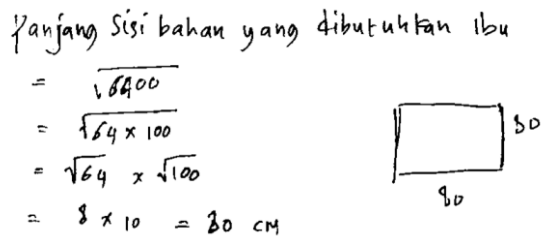 Panjang Sisi bahan yang dibutuhkan Ibu
= √6400
= √64 × 100
= √64 × √100
= 8 × 10 = 80 cm
80
80